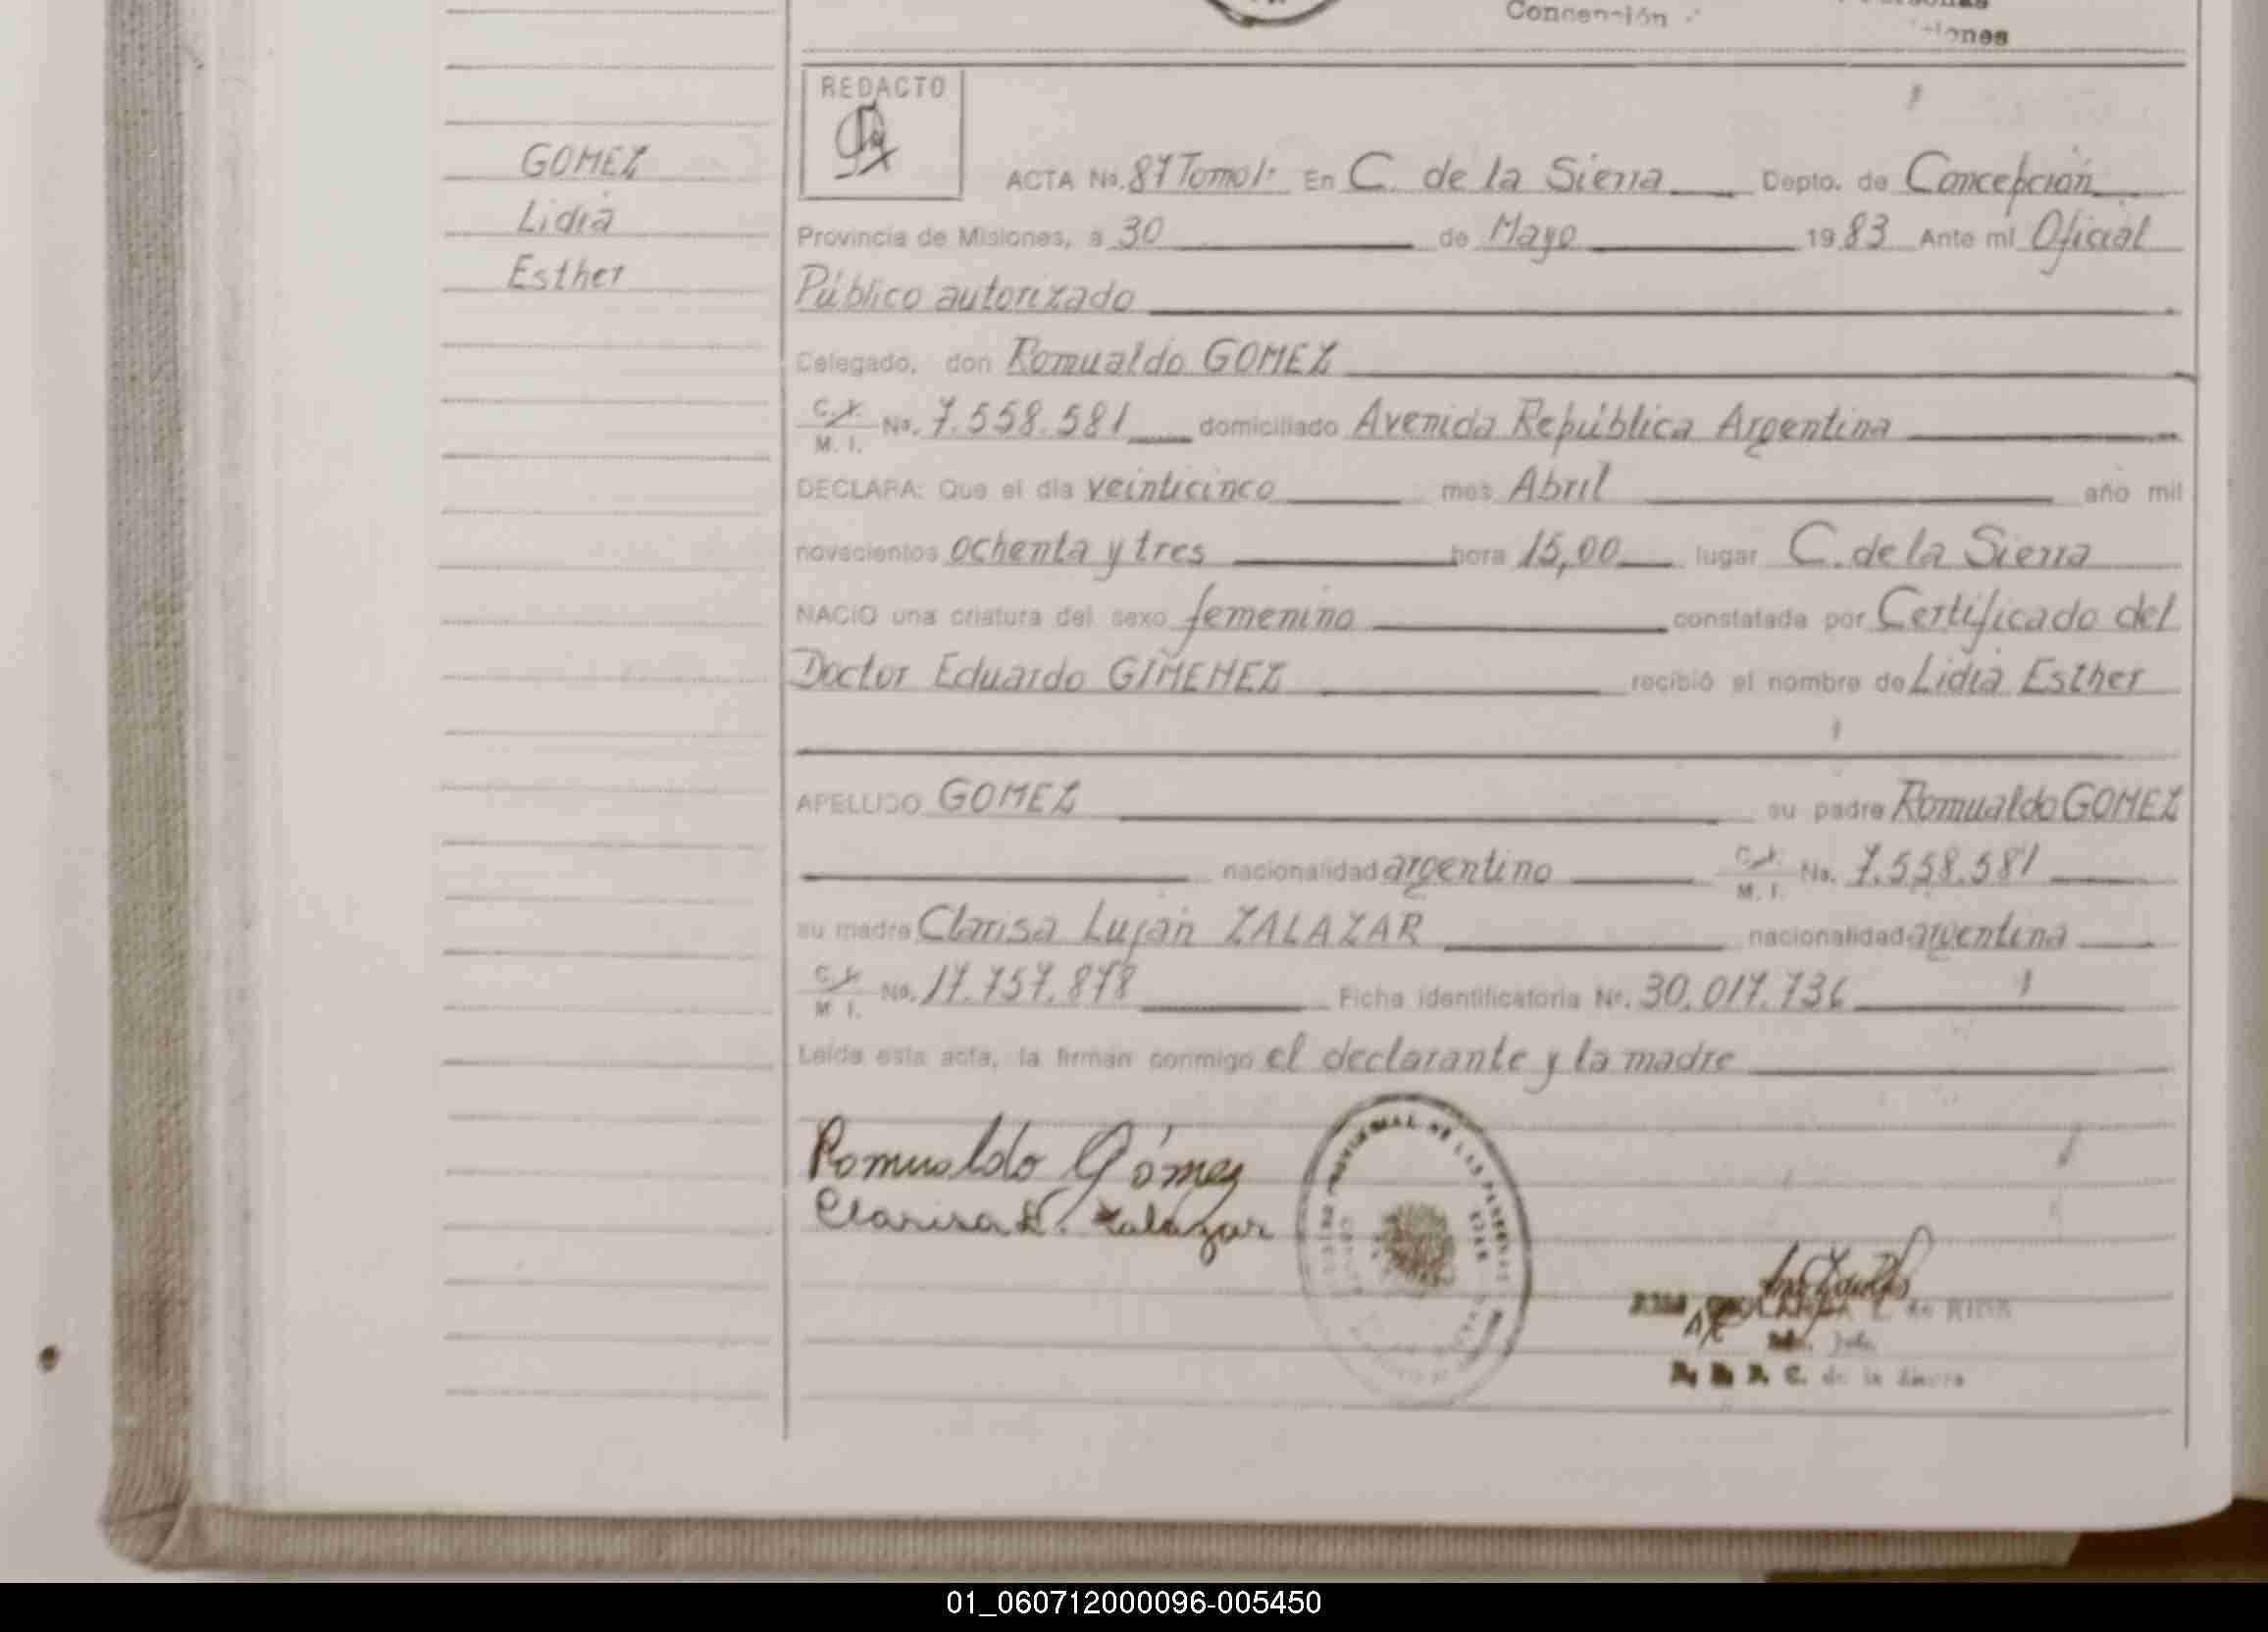 Concepción
REDACTO
GOMEZ
Lidia
Esther
ACTA No. 87 Tomo 1º En C. de la Sierra Depto. de Concepción
Provincia de Misiones, a 30 de Mayo 1983 Ante mi Oficial
Público autorizado
Delegado, don Romualdo GOMEZ
C. I. M. I. No. 7.558.581 domiciliado Avenida República Argentina
DECLARA: Que el día veinticinco mes Abril año mil
novecientos ochenta y tres hora 15,00 lugar C. de la Sierra
NACIO una criatura del sexo femenino constatada por Certificado del
Doctor Eduardo GIMENEZ recibió el nombre de Lidia Esther
APELLIDO GOMEZ su padre Romualdo GOMEZ
nacionalidad argentino C. I. M. I. No. 7.558.581
su madre Clarisa Luján ZALAZAR nacionalidad argentina
C. I. M. I. No. 17.757.878 Ficha identificatoria Nº. 30.017.736
Leída esta acta, la firman conmigo el declarante y la madre
Romualdo Gómez
Clarisa L. Zalazar
PROVINCIAL DE LAS PERSONAS
de RIOS
C. de la Sierra
01_060712000096-005450